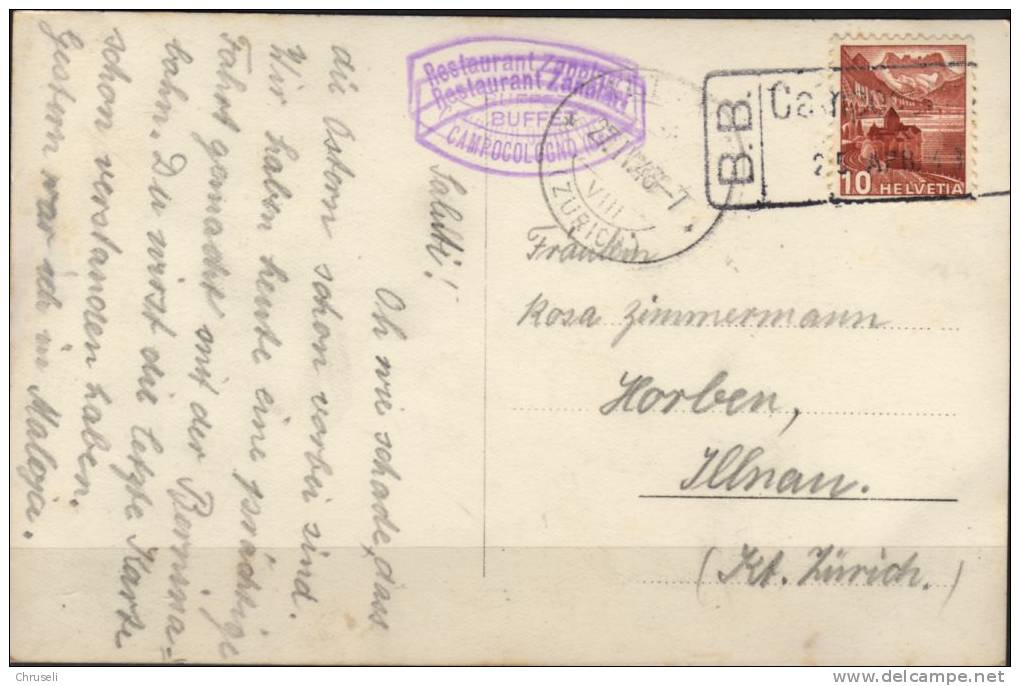 Saluti!
Oh wie schade, dass
die Ostern schon vorbei sind.
Wir haben heute eine prächtige
Fahrt gemacht mit der Bernina=
bahn. Du wirst die letzte Karte
schon verstanden haben.
Gestern war ich in Maloja.
Restaurant Zanolari
Restaurant Zanolari
BUFFET
CAMPOCOLOGNO
27. IV.43
VIII
(ZÜRICH)
B.B.
25. APR. 43
10 HELVETIA
Fräulein
Rosa Zimmermann
Horben,
Illnau.
(Kt. Zürich.)
Chruseli
delcampe.net